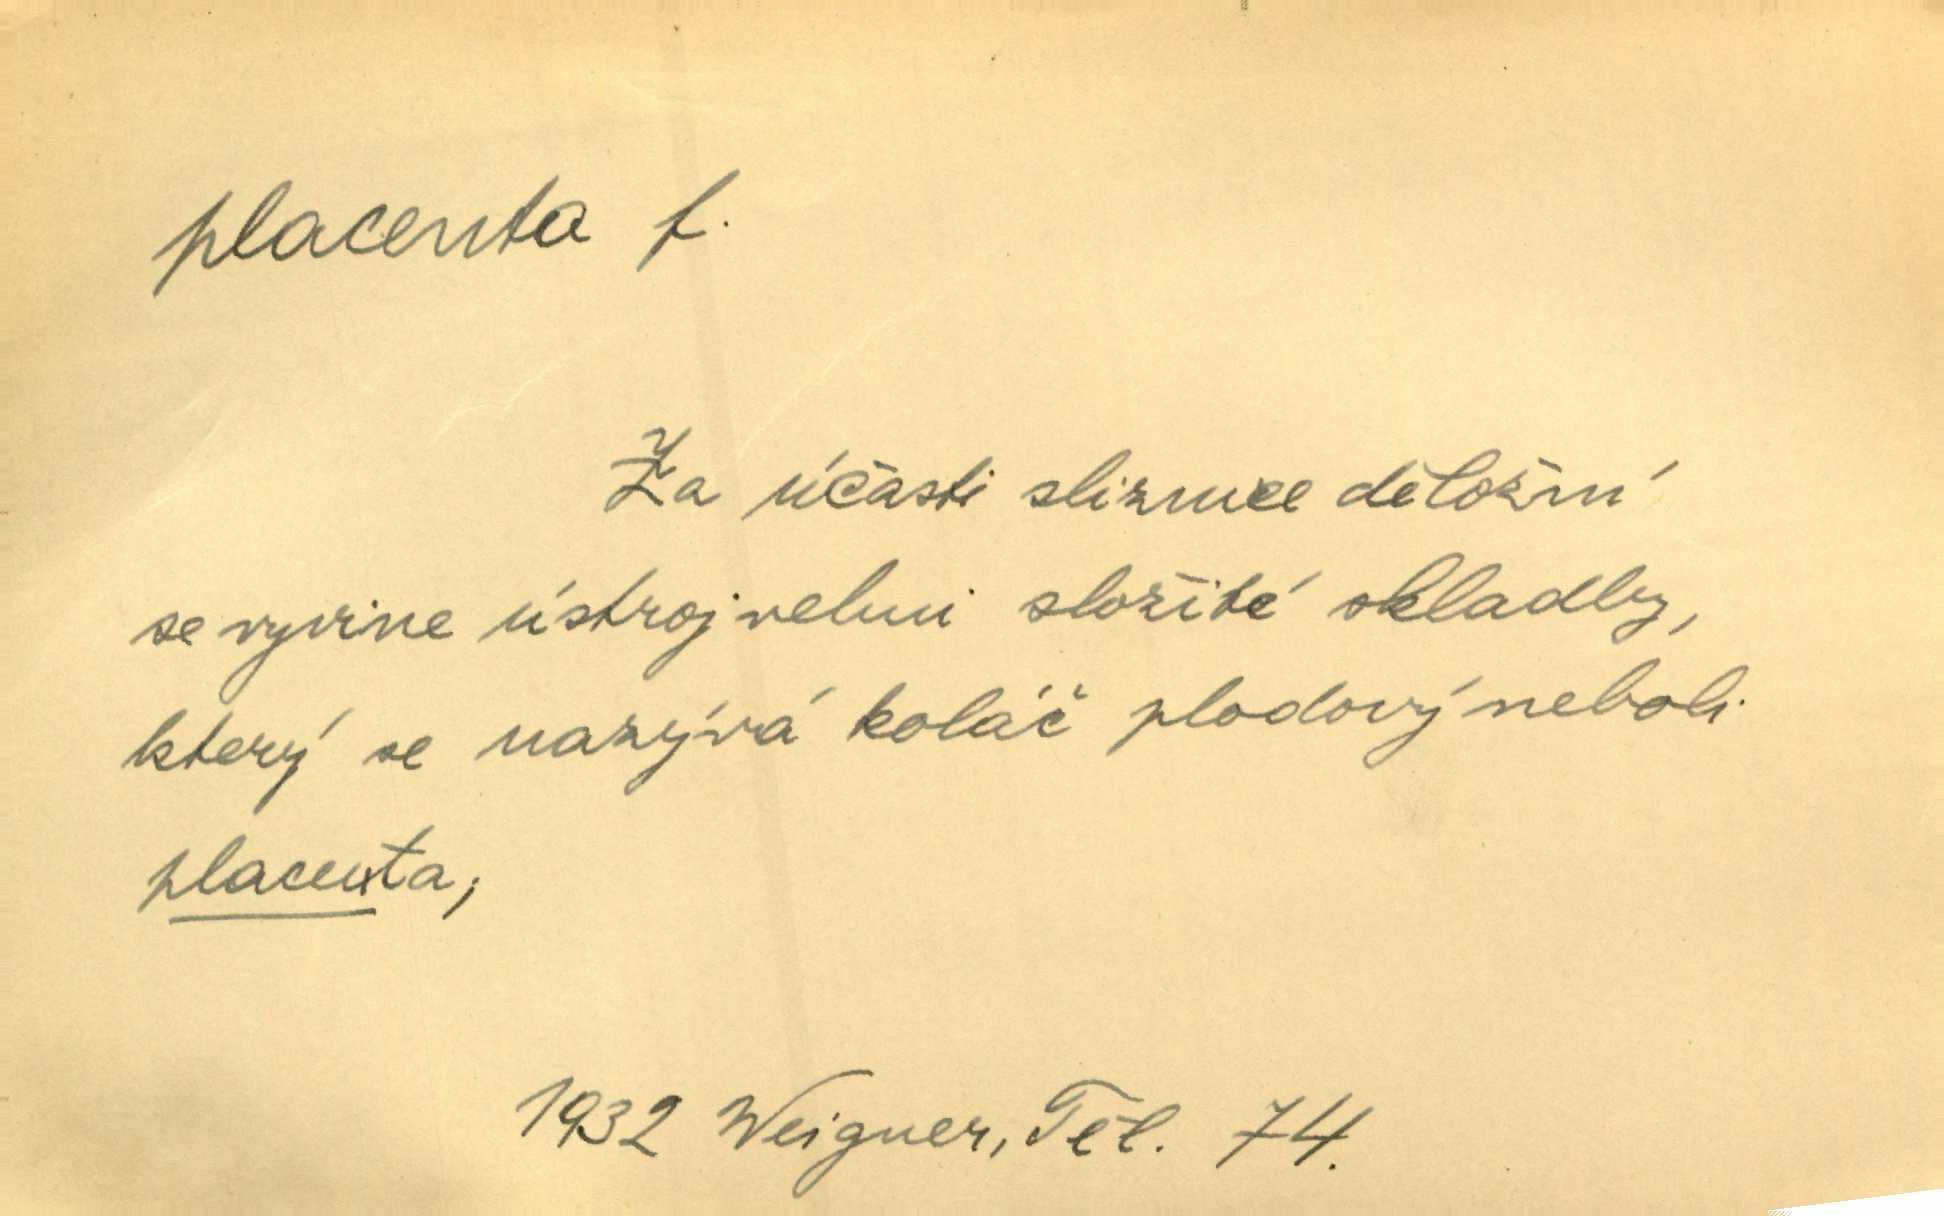 placenta f.
Za účasti sliznice děložní
se vyvine ústroj velmi složité skladby,
který se nazývá koláč plodový neboli
placenta;
1932 Weigner, Těl. 74.